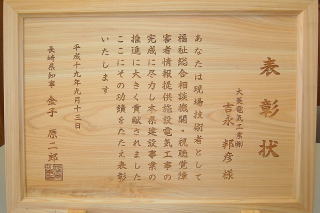 表彰状
大菱電気工業㈱
吉永邦彦様
あなたは現場技術者として
福祉総合相談機関・視聴覚障
害者情報提供施設電気工事の
完成に尽力し本県建設事業の
推進に大きく貢献されました
ここにその功績をたたえ表彰
いたします
平成十九年九月十三日
長崎県知事 金子原二郎